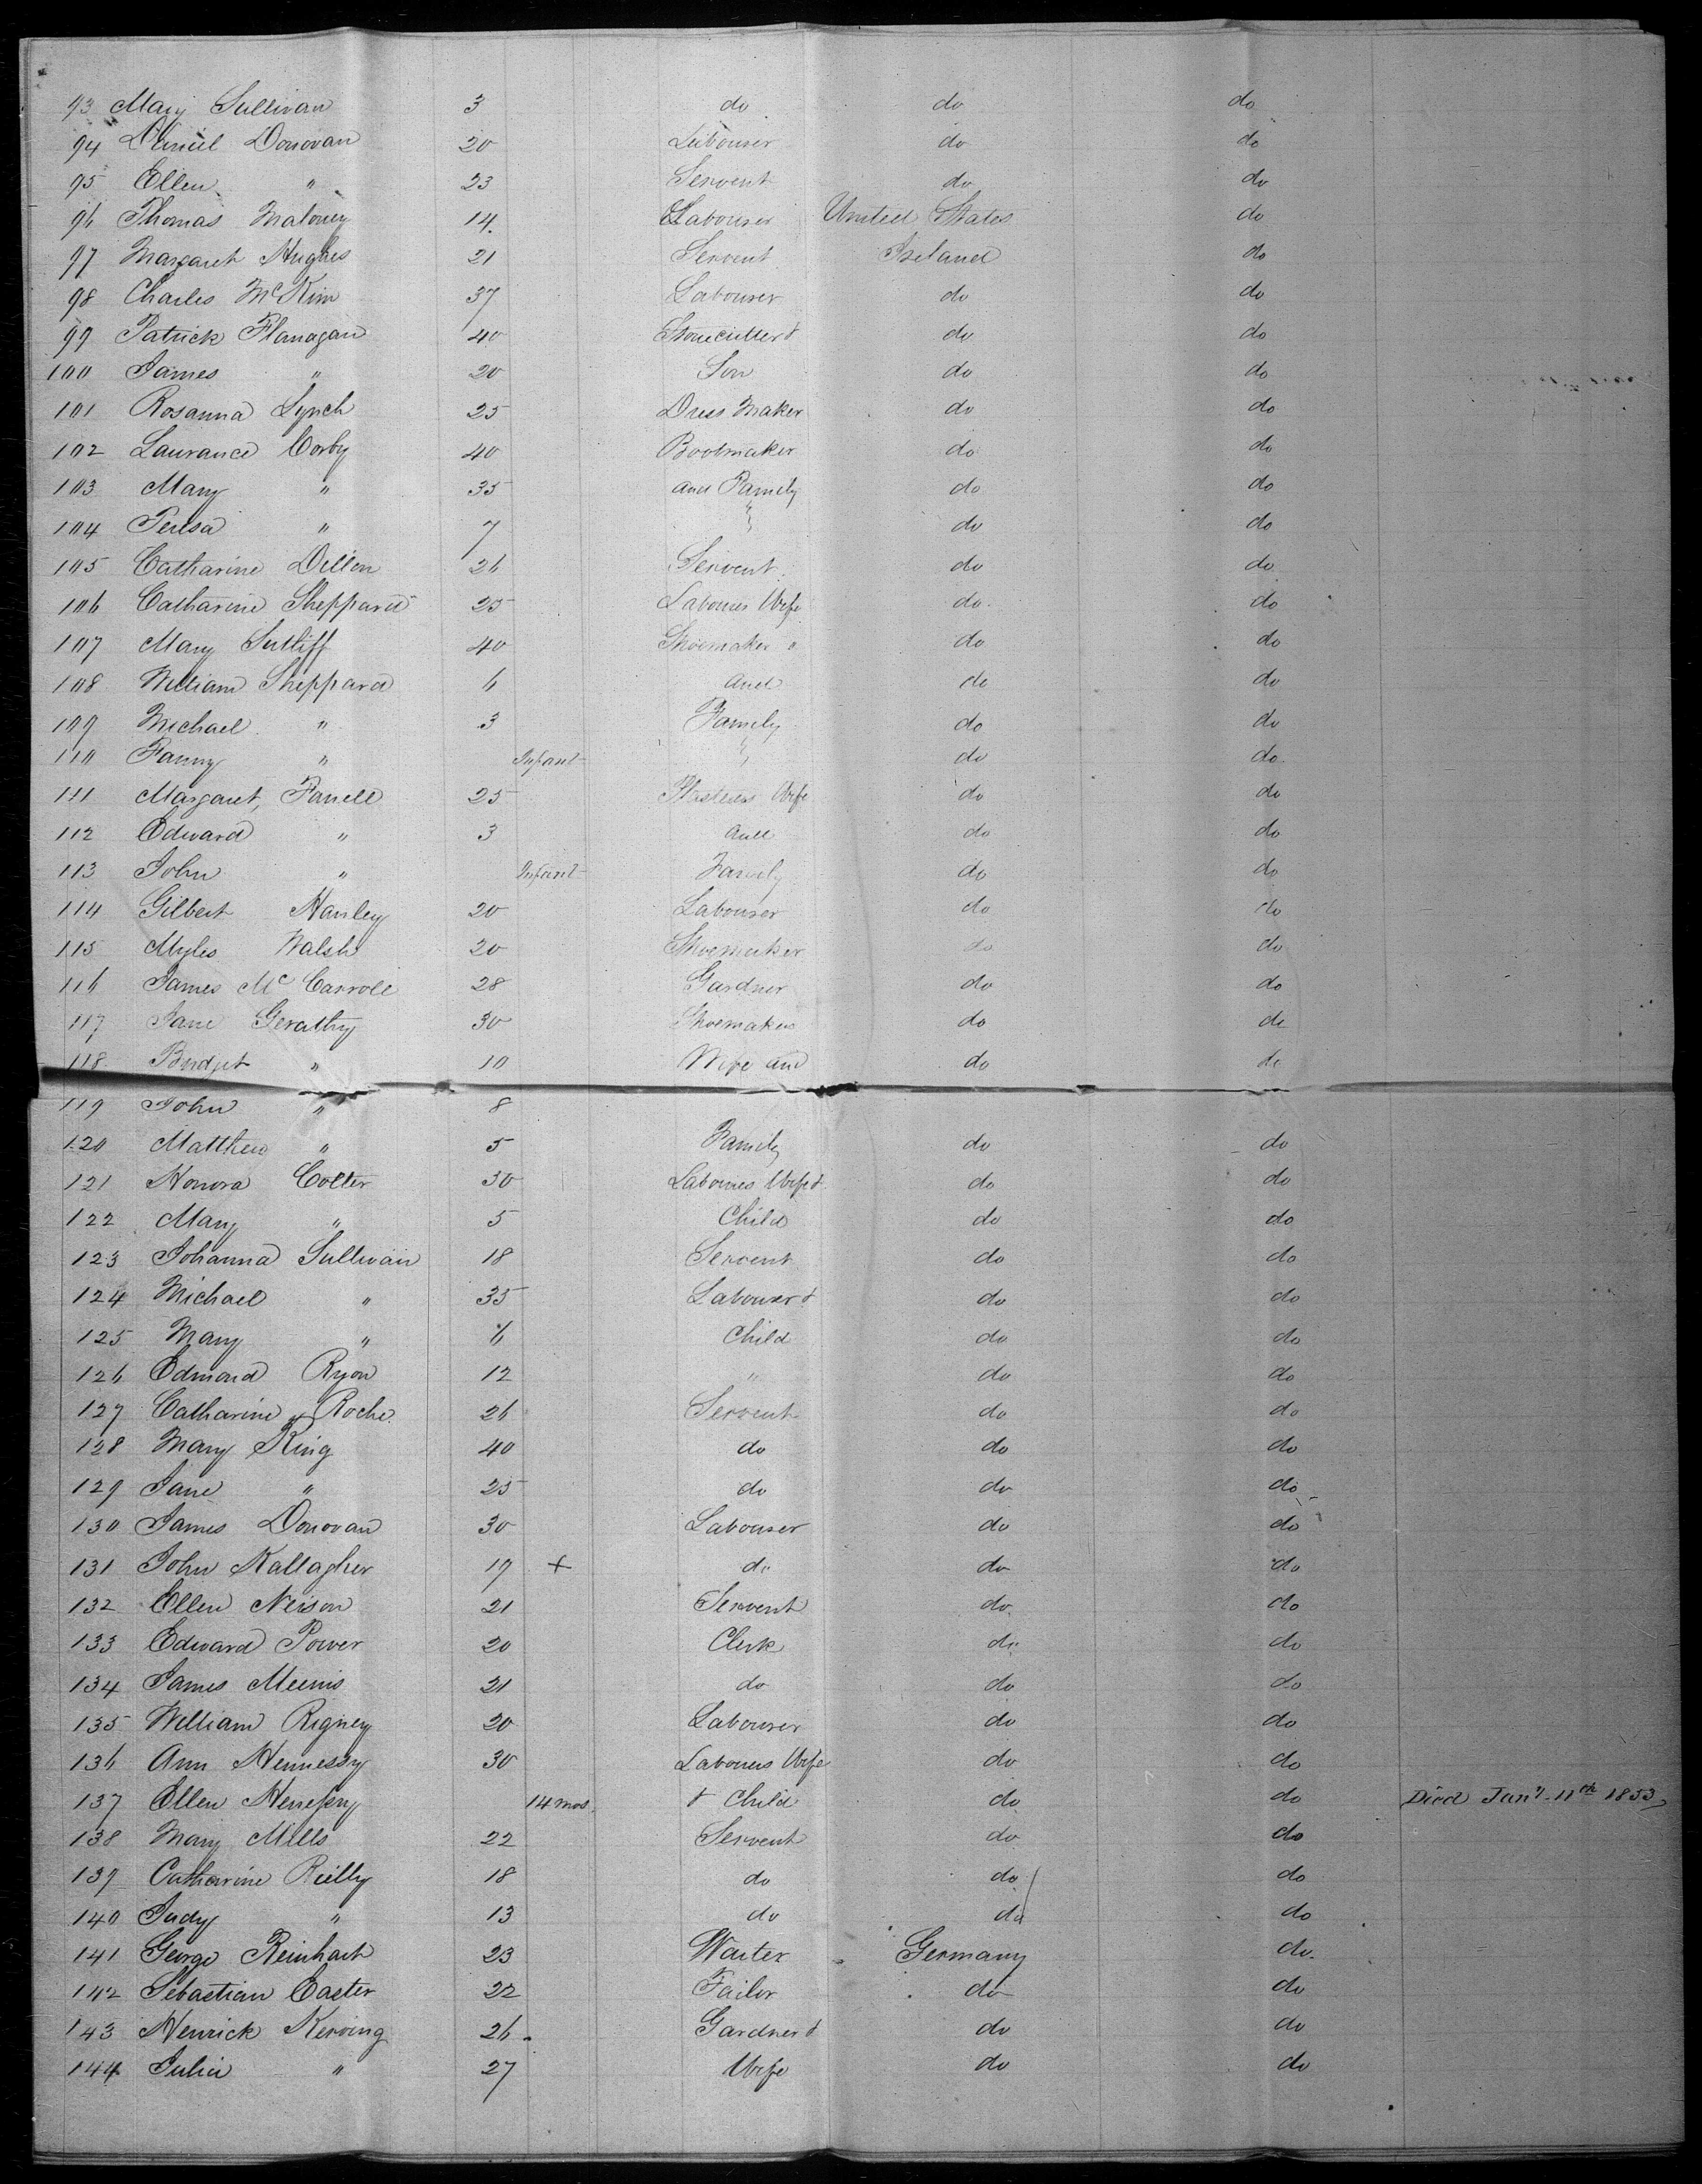 93 Mary Sullivan 3 do do do
94 Daniel Donovan 20 Labourer do do
95 Ellen " 23 Servent do do
96 Thomas Maloney 14 Labourer United States do
97 Margaret Hughes 21 Servent Ireland do
98 Charles McKim 37 Labourer do do
99 Patrick Flanagan 40 Stonecutter & do do
100 James " 20 Son do do
101 Rosanna Lynch 25 Dress Maker do do
102 Laurance Corby 40 Bootmaker do do
103 Mary " 35 and Family do do
104 Teresa " 7 " do do
105 Catharine Dillon 26 Servent do do
106 Catharine Sheppard 25 Labourers Wife do do
107 Mary Sutliff 40 Shoemaker " do do
108 William Sheppard 6 and do do
109 Michael " 3 Family do do
110 Fanny " Infant " do do
111 Margaret Farrell 25 Plasterers Wife do do
112 Edward " 3 and do do
113 John " Infant Family do do
114 Gilbert Hanley 20 Labourer do do
115 Myles Walsh 20 Shoemaker do do
116 James McCarroll 28 Gardner do do
117 Jane Gerathy 30 Shoemakers do do
118 Bridget " 10 Wife and do do
119 John " 8
120 Matthew " 5 Family do do
121 Honora Colter 30 Labourers Wife & do do
122 Mary " 5 Child do do
123 Johanna Sullivan 18 Servent do do
124 Michael " 35 Labourer & do do
125 Mary " 6 Child do do
126 Edmond Ryon 12 " do do
127 Catharine Roche 26 Servent do do
128 Mary King 40 do do do
129 Jane " 25 do do do
130 James Donovan 30 Labourer do do
131 John Kallagher 19 + do do do
132 Ellen Neison 21 Servent do do
133 Edward Power 20 Clerk do do
134 James Meenis 21 do do do
135 William Rigney 20 Labourer do do
136 Ann Hennessy 30 Labourers Wife do do
137 Ellen Hennessy 14 mos. & Child do do Died Jany. 11th 1853
138 Mary Mills 22 Servent do do
139 Catharine Reilly 18 do do do
140 Judy " 13 do do do
141 George Reinhart 23 Waiter Germany do
142 Sebastian Caster 22 Tailor do do
143 Henrick Kerving 26 Gardner & do do
144 Julia " 27 Wife do do